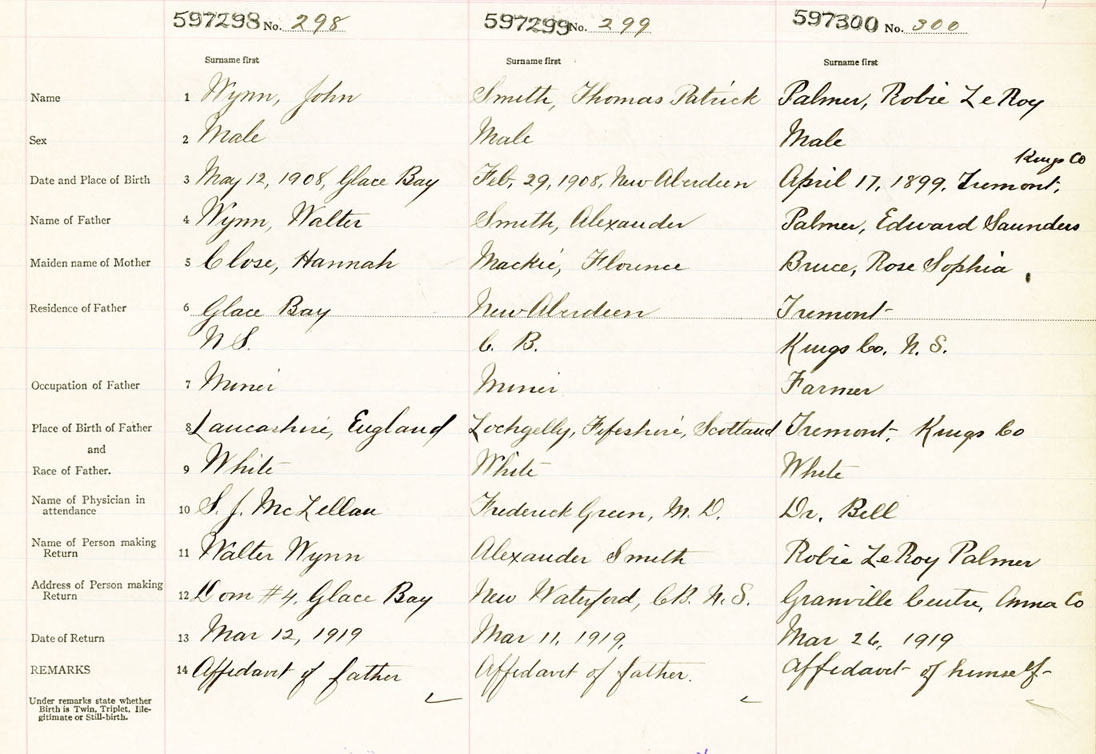 597298 No. 298 597299 No. 299 597300 No. 300
Surname first Surname first Surname first
Name 1 Wynn, John Smith, Thomas Patrick Palmer, Robie LeRoy
Sex 2 Male Male Male
Kings Co
Date and Place of Birth 3 May 12, 1908, Glace Bay Feb, 29, 1908, New Aberdeen April 17, 1899, Tremont,
Name of Father 4 Wynn, Walter Smith, Alexander Palmer, Edward Saunders
Maiden name of Mother 5 Close, Hannah Mackie, Florence Bruce, Rose Sophia
Residence of Father 6 Glace Bay New Aberdeen Tremont
N S. C. B. Kings Co. N. S.
Occupation of Father 7 Miner Miner Farmer
Place of Birth of Father 8 Lancashire, England Lochgelly, Fifeshire, Scotland Tremont, Kings Co
and
Race of Father. 9 White White White
Name of Physician in
attendance 10 S. J. McLellan Frederick Green, M. D. Dr. Bell
Name of Person making
Return 11 Walter Wynn Alexander Smith Robie LeRoy Palmer
Address of Person making
Return 12 Dom #4, Glace Bay New Waterford, C.B. N.S. Granville Centre, Anna Co
Date of Return 13 Mar 12, 1919 Mar 11, 1919, Mar 26, 1919
REMARKS 14 Affidavit of father Affidavit of father. Affidavit of himself
Under remarks state whether
Birth is Twin, Triplet, Ille-
gitimate or Still-birth.